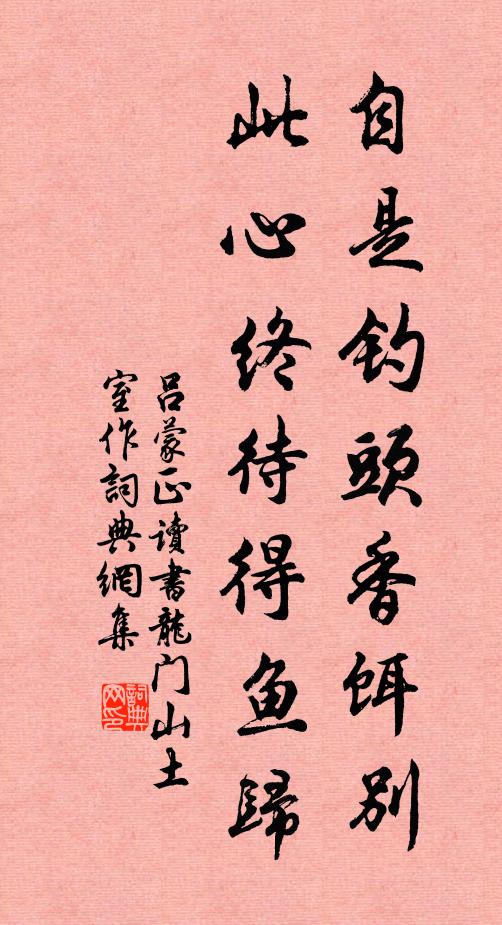 自是钓頭香餌别
此心终待得鱼歸
吕蒙正讀書龍门山土
室作詞典網集
詞典网印